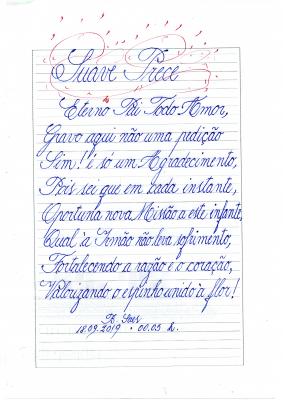 Suave Prece
Eterno Pai Todo Amor,
Gravo aqui não uma pedição
Sim! é só um Agradecimento,
Pois sei que em cada instante,
Oportuna nova Missão a este infante,
Qual à Irmão não leva sofrimento,
Fortalecendo a razão e o coração,
Valorizando o espinho unido à flor!
18.09.2019 . 00.05 h.